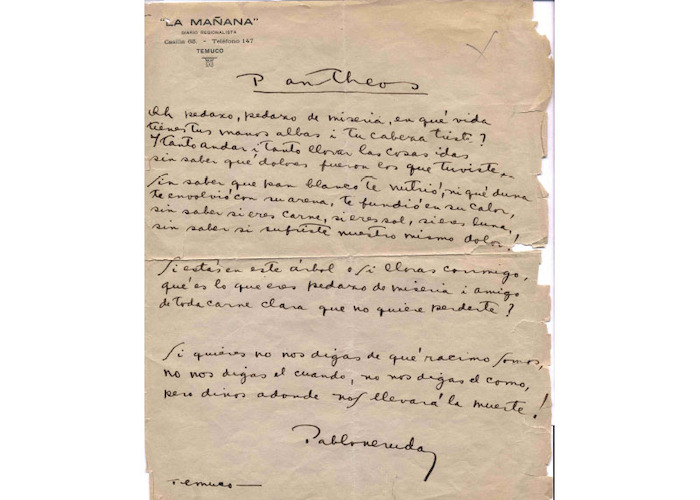 "LA MAÑANA"
DIARIO REGIONALISTA
Casilla 68. - Teléfono 147
TEMUCO
Pantheos
Oh pedazo, pedazo de miseria, en qué vida
tienes tus manos albas i tu cabeza triste?
Y tanto andar i tanto llorar las cosas idas
sin saber qué dolores fueron los que tuviste...
Sin saber que pan blanco te nutrió, ni qué duna
te envolvió con su arena, te fundió en su calor,
sin saber si eres carne, si eres sol, si eres luna,
sin saber si sufriste nuestro mismo dolor!
Si estás en este árbol o si lloras conmigo,
qué es lo que eres pedazo de miseria i amigo
de toda carne clara que no quiere perderte?
Si quieres no nos digas de qué racimo somos,
no nos digas el cuando, no nos digas el como,
pero dinos adonde nos llevará la muerte!
Pablo neruda
Temuco